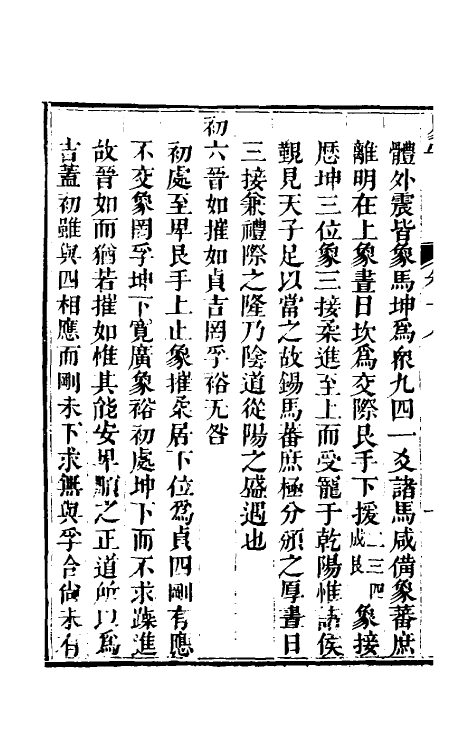 體外震皆象馬坤爲衆九四一爻諸馬咸備象蕃庶
離明在上象晝日坎爲交際艮手下援二三四成艮象接
歷坤三位象三接柔進至上而受寵于乾陽惟諸侯
覲見天子足以當之故錫馬蕃庶極分頒之厚晝日
三接兼禮際之隆乃陰道從陽之盛遇也
初六晉如摧如貞吉罔孚裕无咎
初處至卑艮手上止象摧柔居下位爲貞四剛有應
不交象罔孚坤下寬廣象裕初處坤下而不求躁進
故晉如而猶若摧如惟其能安卑順之正道所以爲
吉蓋初雖與四相應而剛未下求無與孚合尙未有